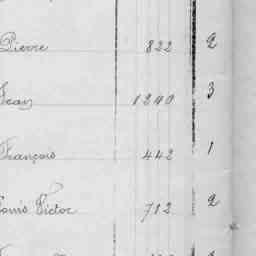 Pierre 822 2
Jean 1240 3
François 442 1
Louis Victor 712 2